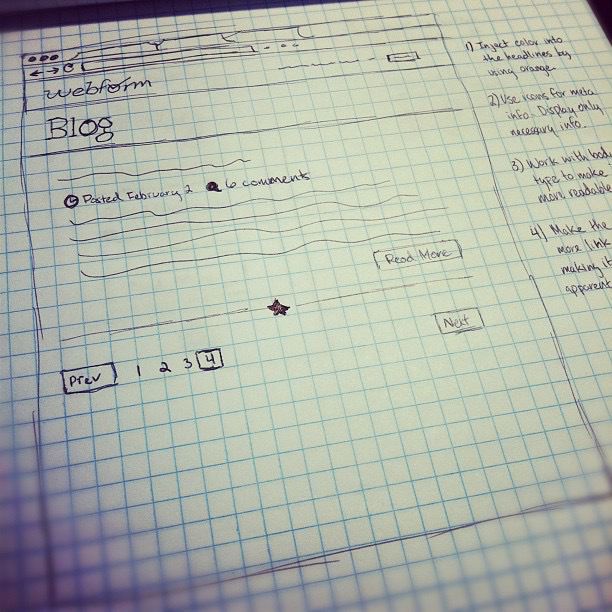 webform
Blog
Posted February 2 6 comments
Read More
Next
Prev 1 2 3 4
1) Inject color into
the headlines by
using orange.
2) Use icons for meta
info. Display only
necessary info.
3) Work with body
type to make
more readable
4) Make the
more link
making it
apparent